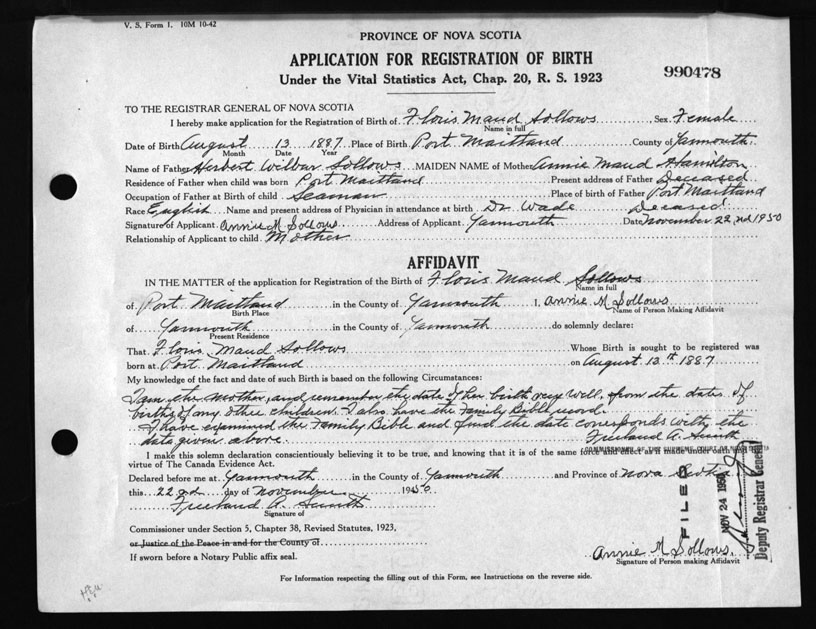 V. S. Form 1. 10M 10-42
PROVINCE OF NOVA SCOTIA
APPLICATION FOR REGISTRATION OF BIRTH
Under the Vital Statistics Act, Chap. 20, R. S. 1923
990478
TO THE REGISTRAR GENERAL OF NOVA SCOTIA
I hereby make application for the Registration of Birth of Floris Maud Sollows Sex Female
Name in full
Date of Birth August 13 1887 Place of Birth Port Maitland County of Yarmouth
Month Date Year
Name of Father Herbert Wilbur Sollows MAIDEN NAME of Mother Annie Maud Hamilton
Residence of Father when child was born Port Maitland Present address of Father Deceased
Occupation of Father at Birth of child Seaman Place of birth of Father Port Maitland
Race English Name and present address of Physician in attendance at birth Dr Wade Deceased
Signature of Applicant Annie M Sollows Address of Applicant Yarmouth Date November 22nd 1950
Relationship of Applicant to child Mother
AFFIDAVIT
IN THE MATTER of the application for Registration of the Birth of Floris Maud Sollows
Name in full
of Port Maitland in the County of Yarmouth I, Annie M Sollows
Birth Place Name of Person Making Affidavit
of Yarmouth in the County of Yarmouth do solemnly declare:
Present Residence
That Floris Maud Sollows Whose Birth is sought to be registered was
born at Port Maitland on August 13th 1887
My knowledge of the fact and date of such Birth is based on the following Circumstances:
I am the mother, and remember the date of her birth very well, from the dates of
births of my other children. I also have the Family Bible record.
I have examined the Family Bible and find the date corresponds with the
date given above. Freeland A. Smith
I make this solemn declaration conscientiously believing it to be true, and knowing that it is of the same force and effect as if made under oath and by
virtue of The Canada Evidence Act.
Declared before me at Yarmouth in the County of Yarmouth and Province of Nova Scotia
this 22nd day of November 1950
Freeland A. Smith
Signature of
Commissioner under Section 5, Chapter 38, Revised Statutes, 1923,
or Justice of the Peace in and for the County of
If sworn before a Notary Public affix seal.
Annie M Sollows
Signature of Person making Affidavit
FILED
NOV 24 1950
Deputy Registrar General
For Information respecting the filling out of this Form, see Instructions on the reverse side.